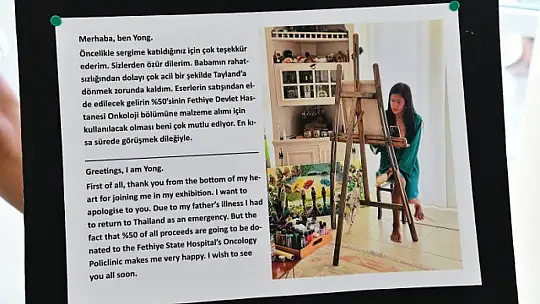 Merhaba, ben Yong.
Öncelikle sergime katıldığınız için çok teşekkür
ederim. Sizlerden özür dilerim. Babamın rahat-
sızlığından dolayı çok acil bir şekilde Tayland’a
dönmek zorunda kaldım. Eserlerin satışından el-
de edilecek gelirin %50’sinin Fethiye Devlet Has-
tanesi Onkoloji bölümüne malzeme alımı için
kullanılacak olması beni çok mutlu ediyor. En kı-
sa sürede görüşmek dileğiyle.
Greetings, I am Yong.
First of all, thank you from the bottom of my he-
art for joining me in my exhibition. I want to
apologise to you. Due to my father’s illness I had
to return to Thailand as an emergency. But the
fact that %50 of all proceeds are going to be do-
nated to the Fethiye State Hospital’s Oncology
Policlinic makes me very happy. I wish to see
you all soon.